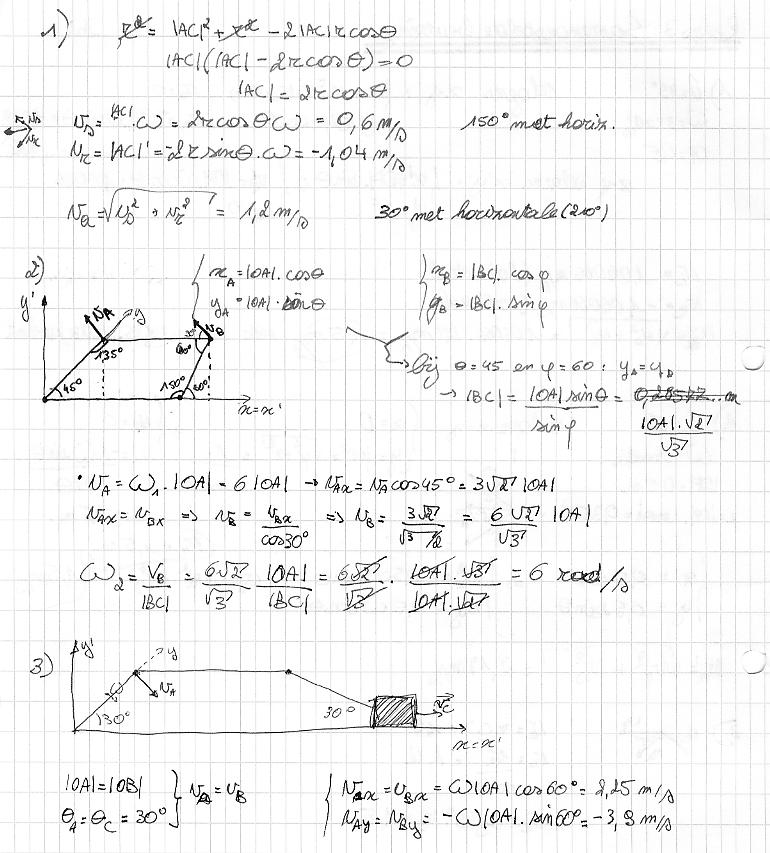 1) r² = |AC|² + r² - 2|AC|r cosθ
|AC|(|AC| - 2r cosθ) = 0
|AC| = 2r cosθ
v_s = |AC|.ω = 2r cosθ ω = 0,6 m/s 150° met horiz.
v_r = |AC|' = -2r sinθ.ω = -1,04 m/s
v_a = √(v_s² + v_r²) = 1,2 m/s 30° met horizontale (210°)
2) x_A = |OA|. cosθ x_B = |BC|. cosφ
y' v_A y y_A = |OA|. sinθ y_B = |BC|. sinφ
v_B
30°
135° 60°
bij θ = 45 en φ = 60 : y_A = y_B
45° 150° 60°
x = x'
→ |BC| = |OA| sinθ / sinφ = |OA|.√2 / √3
• v_A = ω₁ . |OA| = 6 |OA| → v_Ax = v_A cos 45° = 3√2 |OA|
v_Ax = v_Bx => v_B = v_Bx / cos30° => v_B = 3√2 / (√3/2) = 6√2/√3 |OA|
ω₂ = v_B/|BC| = 6√2/√3 |OA|/|BC| = 6√2/√3 . |OA|.√3 / |OA|.√2 = 6 rad/s
3) y' y
ω v_A
30° 30° v_C
x = x'
|OA| = |OB| } v_A = v_B { v_Ax = v_Bx = ω|OA| cos 60° = 2,25 m/s
θ_A = θ_C = 30° v_Ay = v_By = -ω|OA|. sin 60° = -3,9 m/s